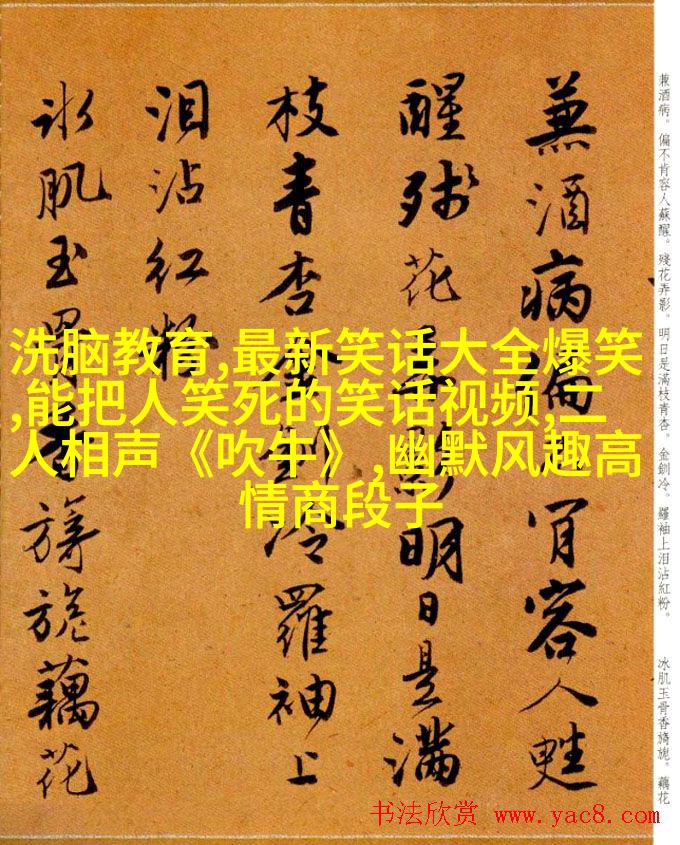 兼酒病。偏不肯容人蘇醒。殘花弄影。明日是滿枝青杏。金釧冷。羅袖上泪沾紅粉。 冰肌玉骨香旖旎。藕花
兼酒病偏肯容人甦
醒殘花影明日是滿
枝青杏釧冷羅袖上
泪沾红粉
冰肌玉骨香旖旎藕花
洗脑教育,最新笑话大全爆笑
,能把人笑死的笑话视频,二
人相声《吹牛》,幽默风趣高
情商段子
书法欣赏 www.yac8.com